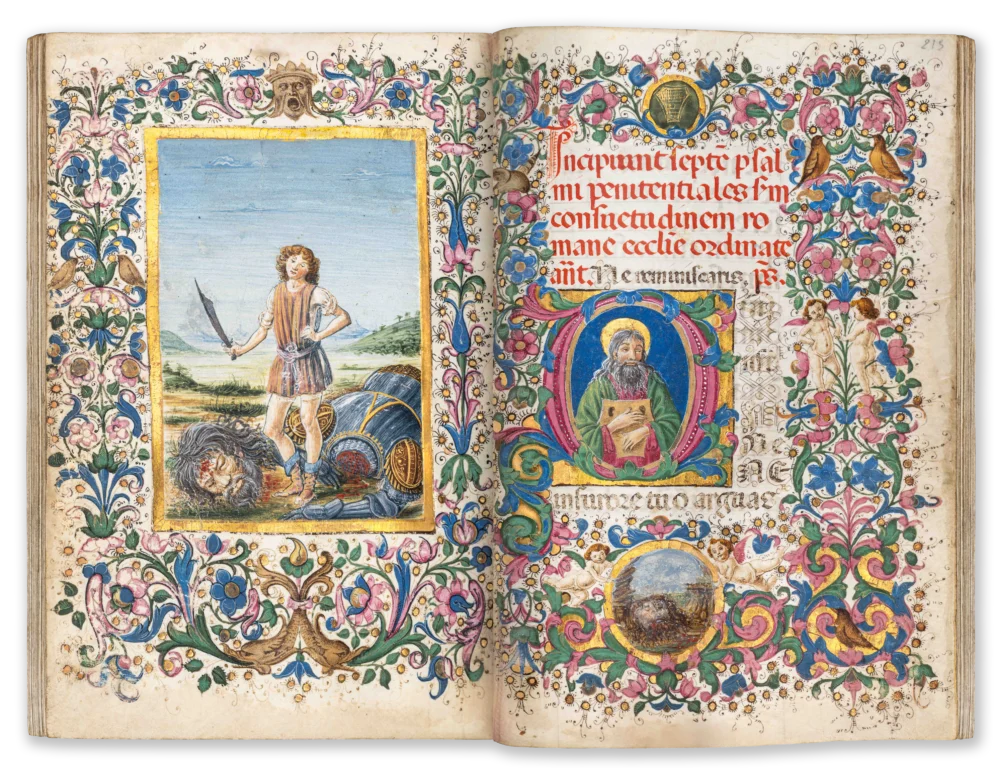 215
Incipiunt septē psal
mi penitentiales sm̄
consuetudinem ro
mane eccl̄ie ordinate
añt. Ne reminiscaris. p̄s.
D
NE
in furore tuo arguas